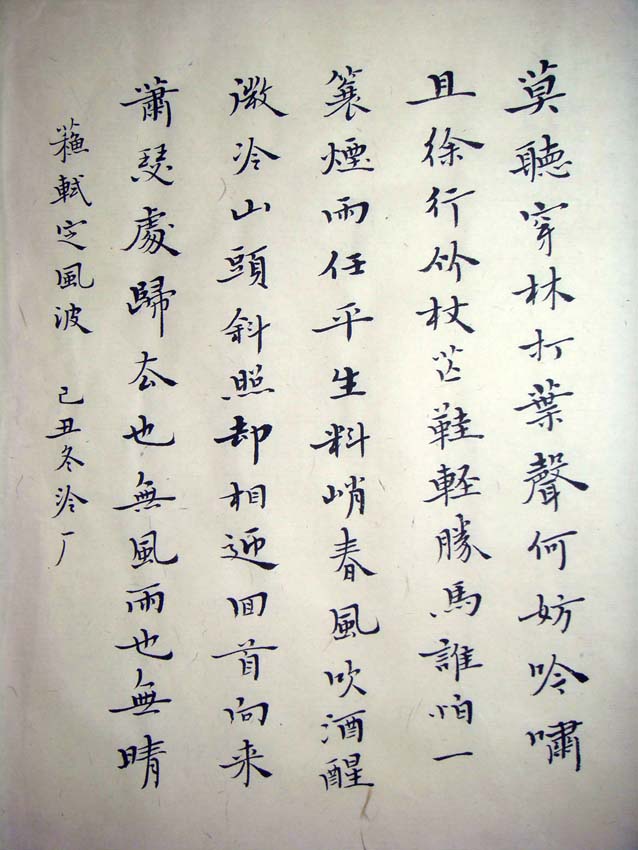 莫聽穿林打葉聲何妨吟嘯
且徐行竹杖芒鞋軽勝馬誰怕一
蓑煙雨任平生料峭春風吹酒醒
微冷山頭斜照却相迎回首向来
蕭瑟處歸去也無風雨也無晴
蘓軾定風波 己丑冬泠厂